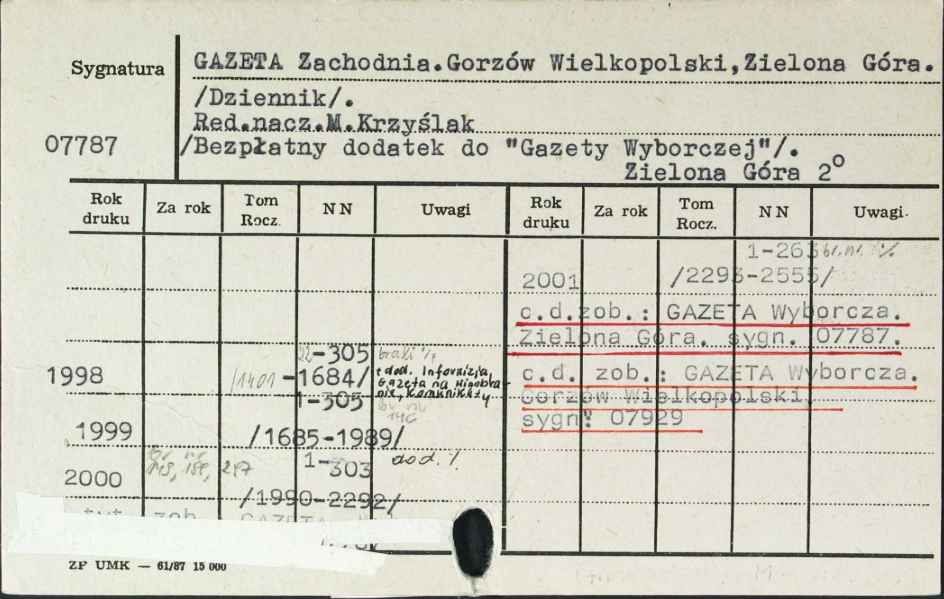 Sygnatura
GAZETA Zachodnia.Gorzów Wielkopolski,Zielona Góra.
/Dziennik/.
Red.nacz.M.Krzyślak
07787
/Bezpłatny dodatek do "Gazety Wyborczej"/.
Zielona Góra 2°
Rok druku Za rok Tom Rocz. NN Uwagi Rok druku Za rok Tom Rocz. NN Uwagi.
1-263
2001 /2293-2555/
c.d.zob.: GAZETA Wyborcza.
Zielona Góra, sygn. 07787.
-305
1998 /1401-1684/ + dod. Informizja,
Gazeta na
Komunikaty
1-305
1999 /1685-1989/
c.d. zob.: GAZETA Wyborcza.
Gorzów Wielkopolski,
sygn: 07929
1-303 dod.
2000 /1990-2292/
zob. GAZETA
ZP UMK — 61/87 15 000